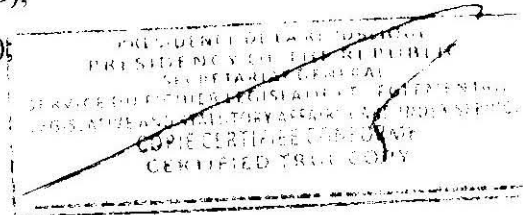 ),
);
PRESIDENCE DE LA REPUBLIQUE
PRESIDENCY OF THE REPUBLIC
SECRETARIAT GENERAL
SERVICE DU FICHIER LEGISLATIF ET
LEGISLATIVE AND STATUTORY AFFAIRS CARD INDEX SERVICE
COPIE CERTIFIEE CONFORME
CERTIFIED TRUE COPY